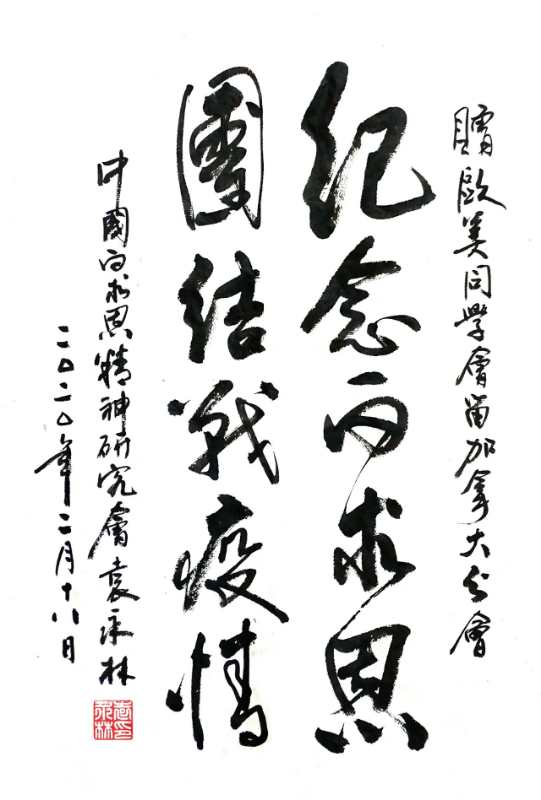 贈歐美同學會留加拿大分會
紀念白求恩
團結戰疫情
中國白求恩精神研究會袁永林
二〇二〇年二月十八日